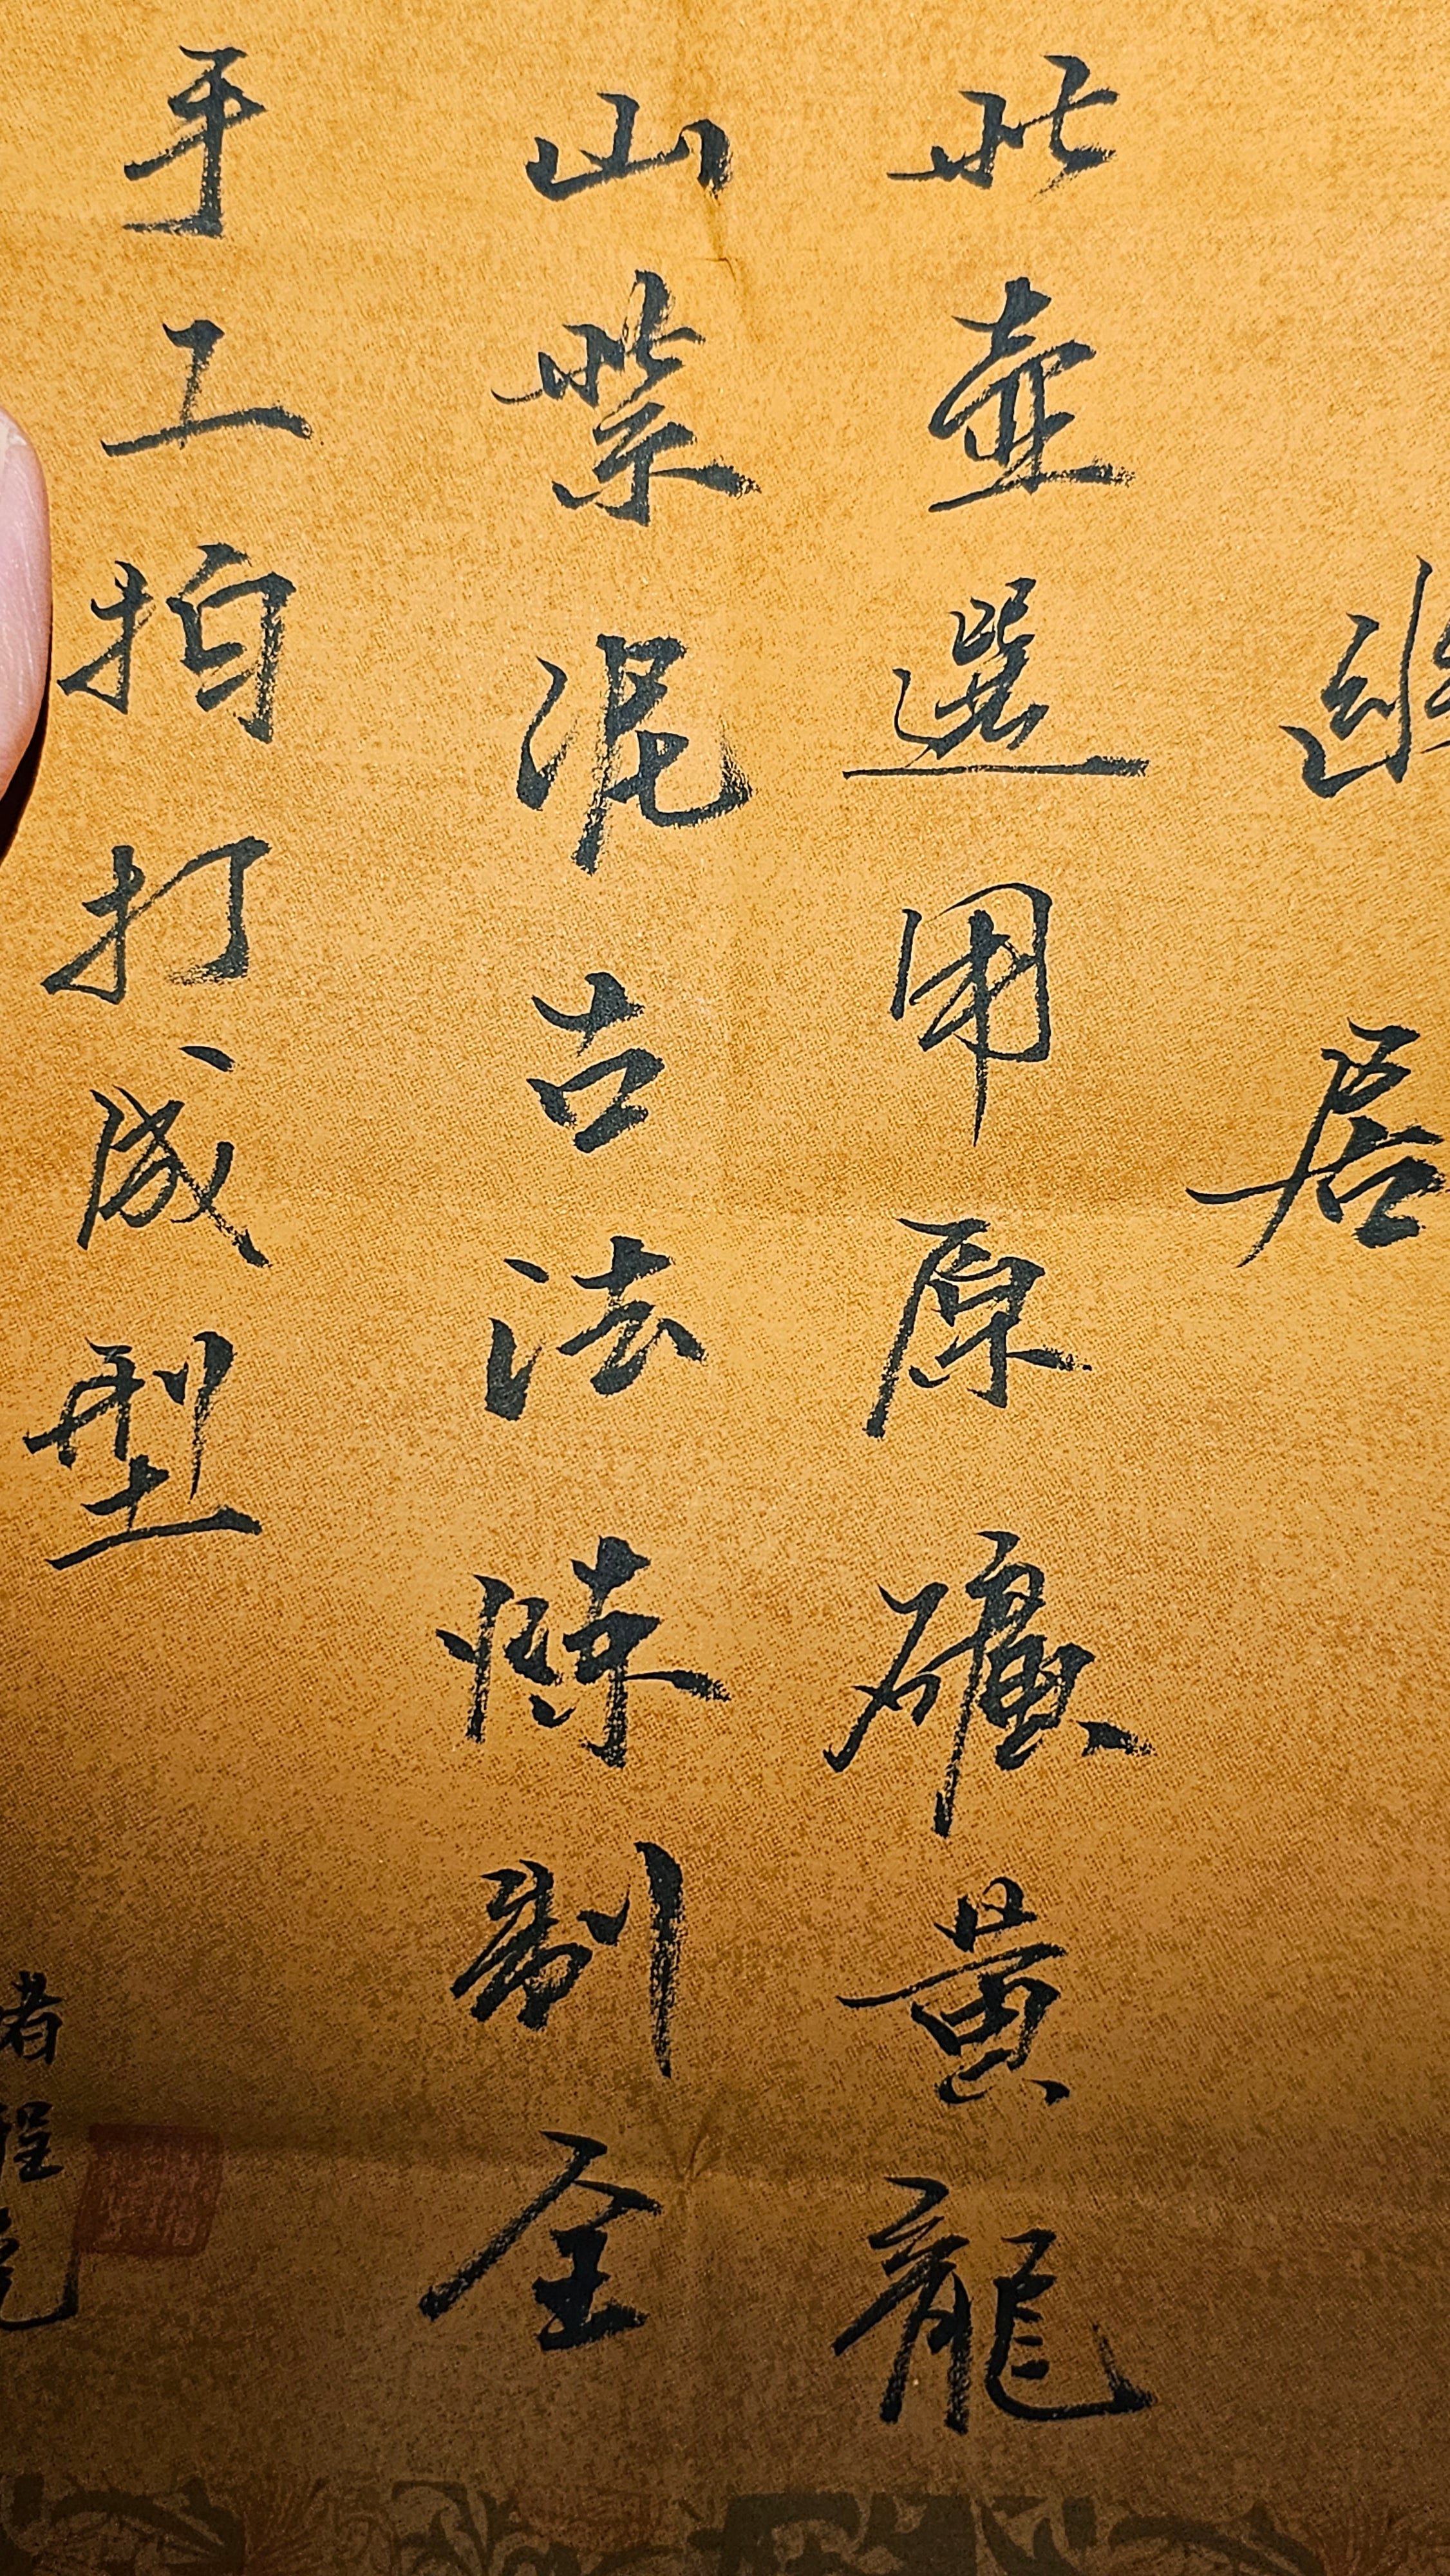 幽居
此壶選用原礦黄龍
山紫泥古法煉制全
手工拍打成型
者程